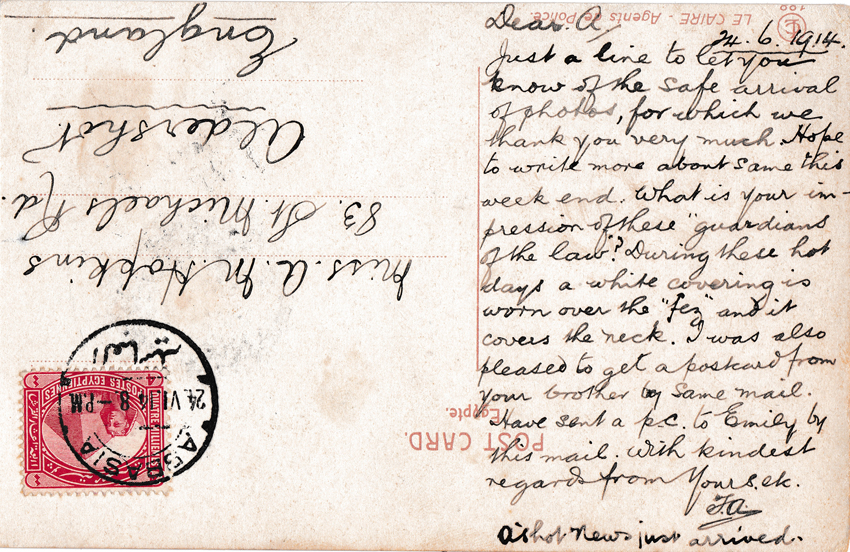 Dear. A
24.6.1914.
Just a line to let you
know of the safe arrival
of photos, for which we
thank you very much. Hope
to write more about same this
week end. What is your im-
pression of these "guardians
of the law"? During these hot
days a white covering is
worn over the "fez" and it
covers the neck. I was also
pleased to get a postcard from
your brother by same mail.
Have sent a p.c. to Emily by
this mail. With kindest
regards from Yours etc.
A'shot News just arrived.
Miss. A. M. Hopkins
83. St. Michaels Rd.
Aldershot
England.
LE CAIRE - Agents de Police.
POST CARD.
Egypte.
POSTES EGYPTIENNES
ABBASIA
24 VI 14 8 - PM
العباسية